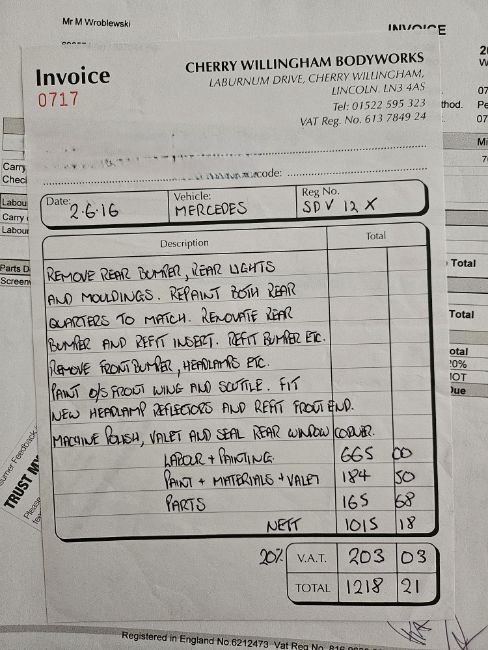 Mr M Wroblewski
INVOICE
Invoice
0717
CHERRY WILLINGHAM BODYWORKS
LABURNUM DRIVE, CHERRY WILLINGHAM,
LINCOLN. LN3 4AS
Tel: 01522 595 323
VAT Reg. No. 613 7849 24
code:
Date: 2.6.16
Vehicle: MERCEDES
Reg No. SDV 12 X
Description
Total
REMOVE REAR BUMPER, REAR LIGHTS
AND MOULDINGS. REPAINT BOTH REAR
QUARTERS TO MATCH. RENOVATE REAR
BUMPER AND REFIT INSERT. REFIT BUMPER ETC.
REMOVE FRONT BUMPER, HEADLAMPS ETC.
PAINT O/S FRONT WING AND SCUTTLE. FIT
NEW HEADLAMP REFLECTORS AND REFIT FRONT END.
MACHINE POLISH, VALET AND SEAL REAR WINDOW CORNER.
LABOUR + PAINTING. 665 00
PAINT + MATERIALS + VALET 184 50
PARTS 165 68
NETT 1015 18
20% V.A.T. 203 03
TOTAL 1218 21
Carry
Labou
Carry
Labour
Parts D
Screen
TRUST MY
thod.
Total
Total
otal
20%
Registered in England No.6212473 Vat Reg No.